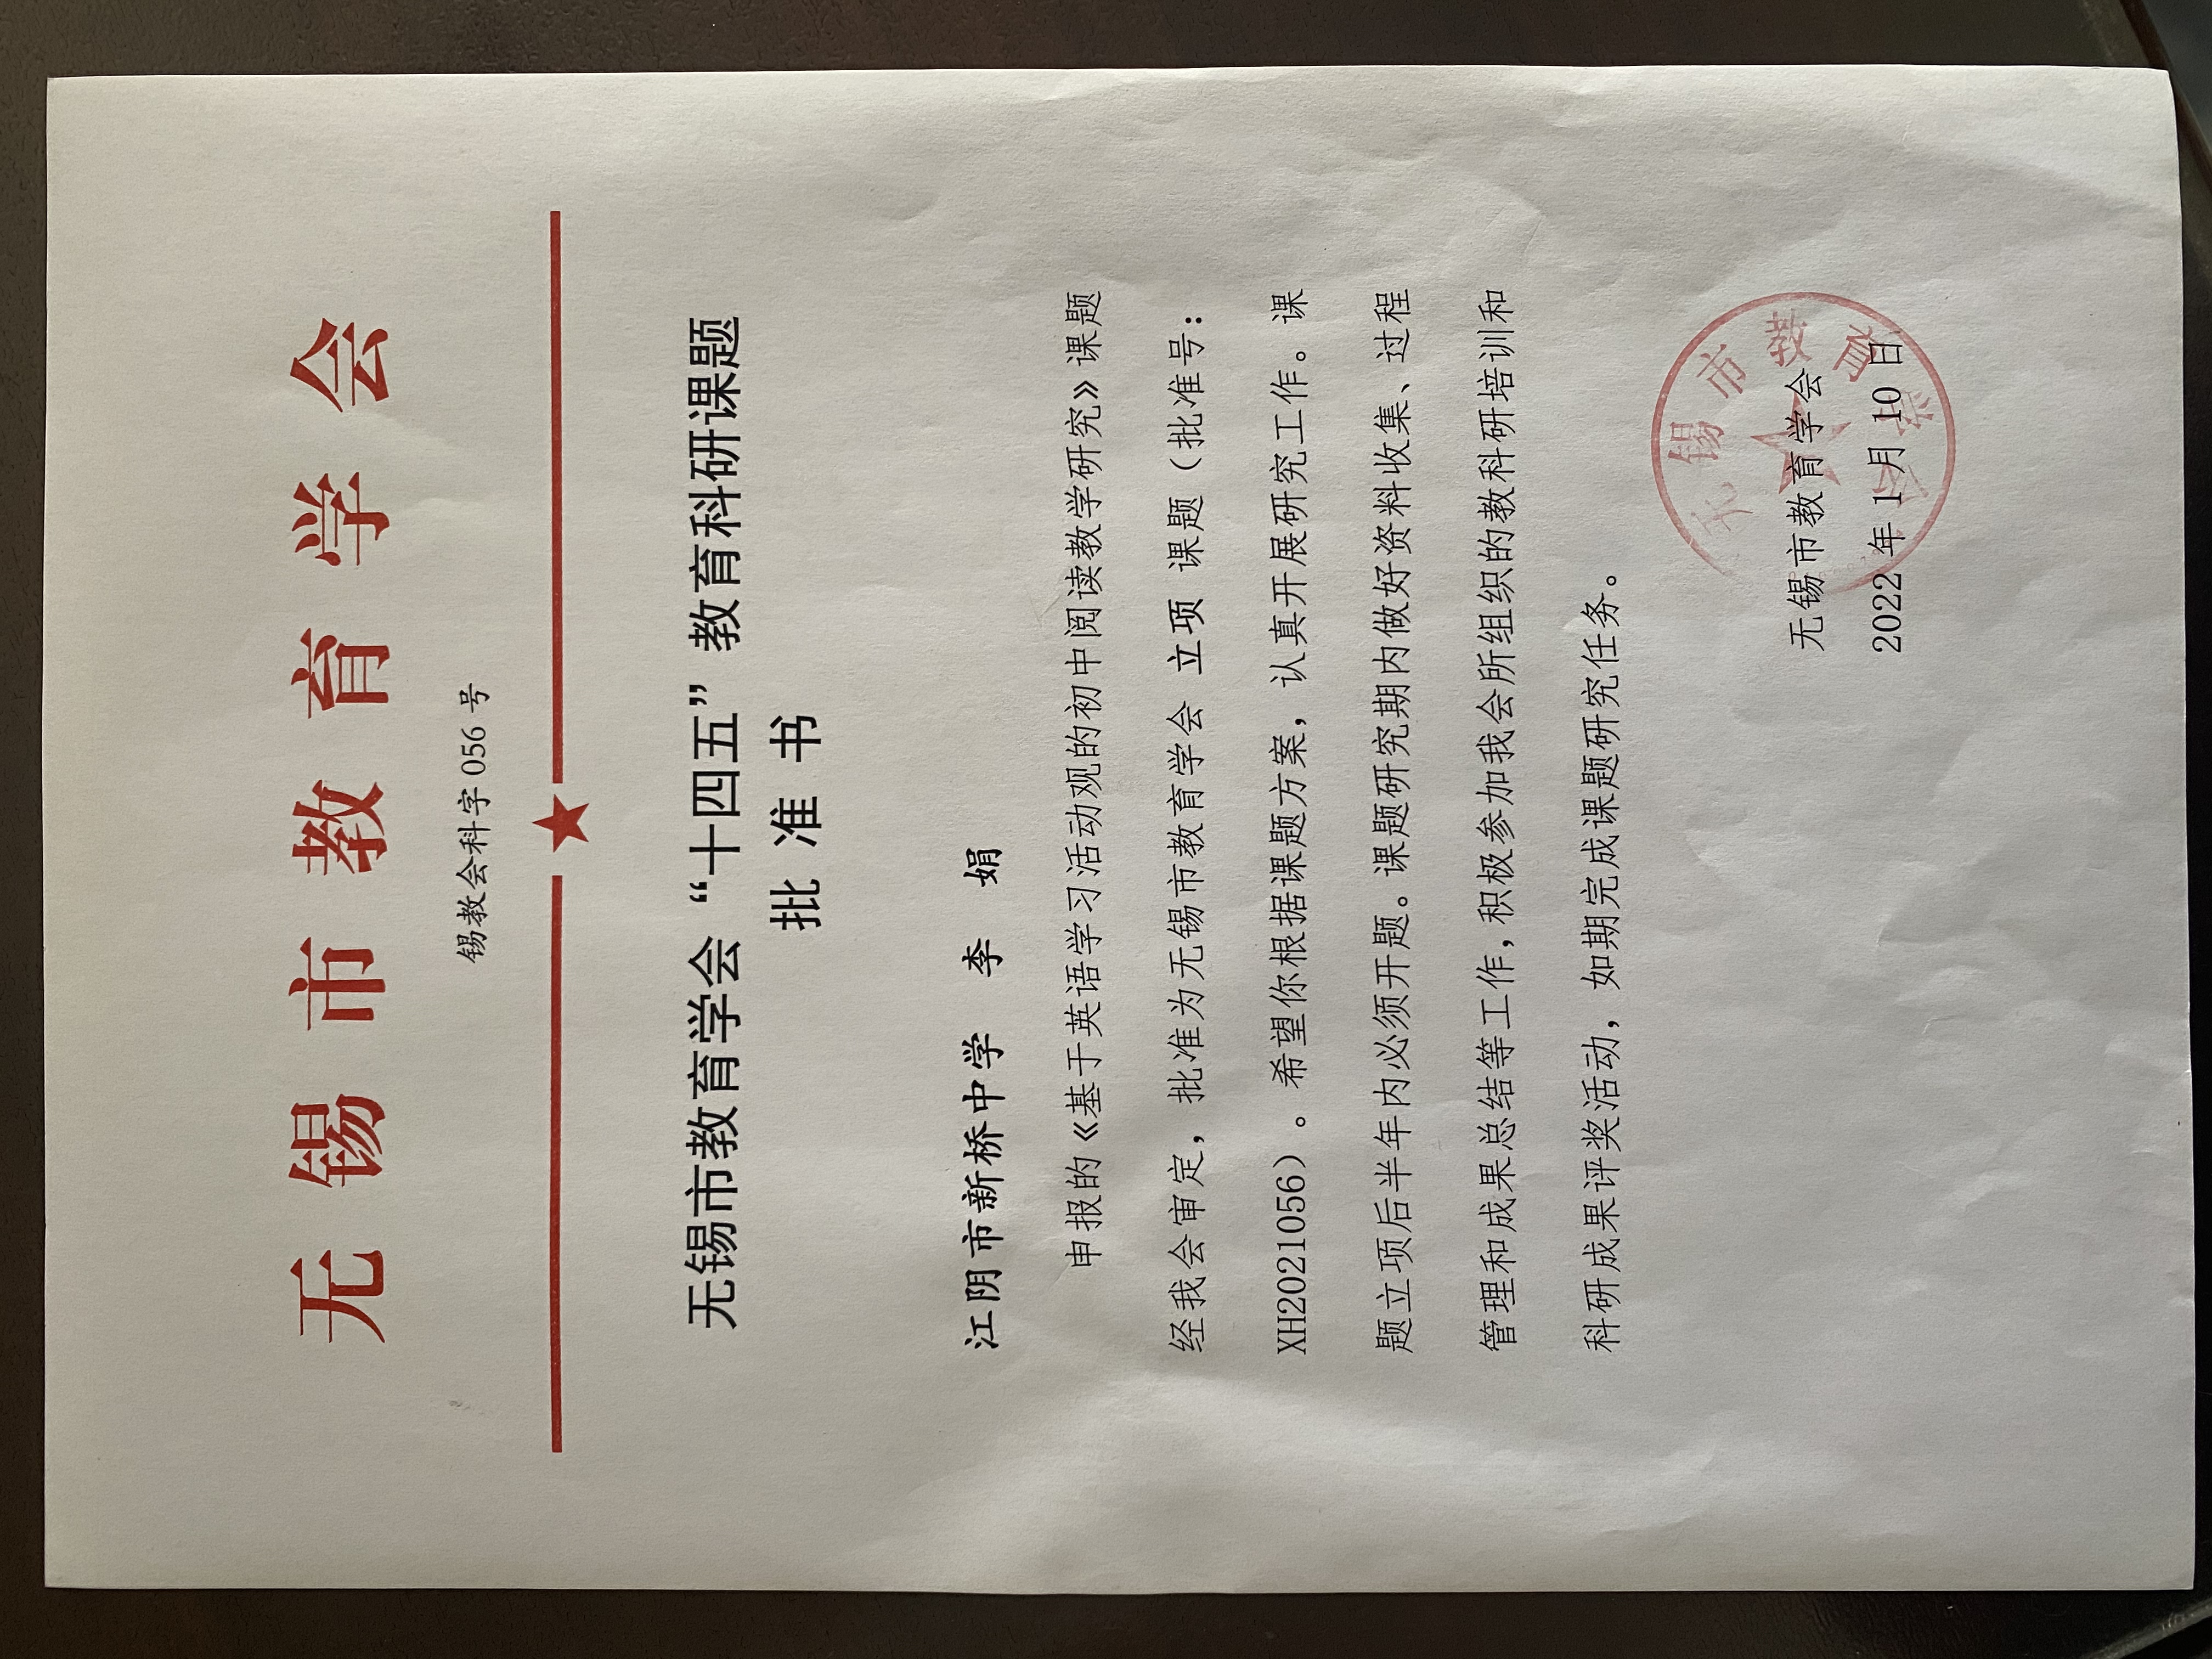 无锡市教育学会
锡教会科字 056 号
无锡市教育学会“十四五”教育科研课题
批 准 书
江阴市新桥中学 李 娟
申报的《基于英语学习活动观的初中阅读教学研究》课题
经我会审定，批准为无锡市教育学会 立项 课题（批准号：
XH2021056）。希望你根据课题方案，认真开展研究工作。课
题立项后半年内必须开题。课题研究期内做好资料收集、过程
管理和成果总结等工作，积极参加我会所组织的教科研培训和
科研成果评奖活动，如期完成课题研究任务。
无锡市教育学会
无锡市教育学会
2022 年 1 月 10 日